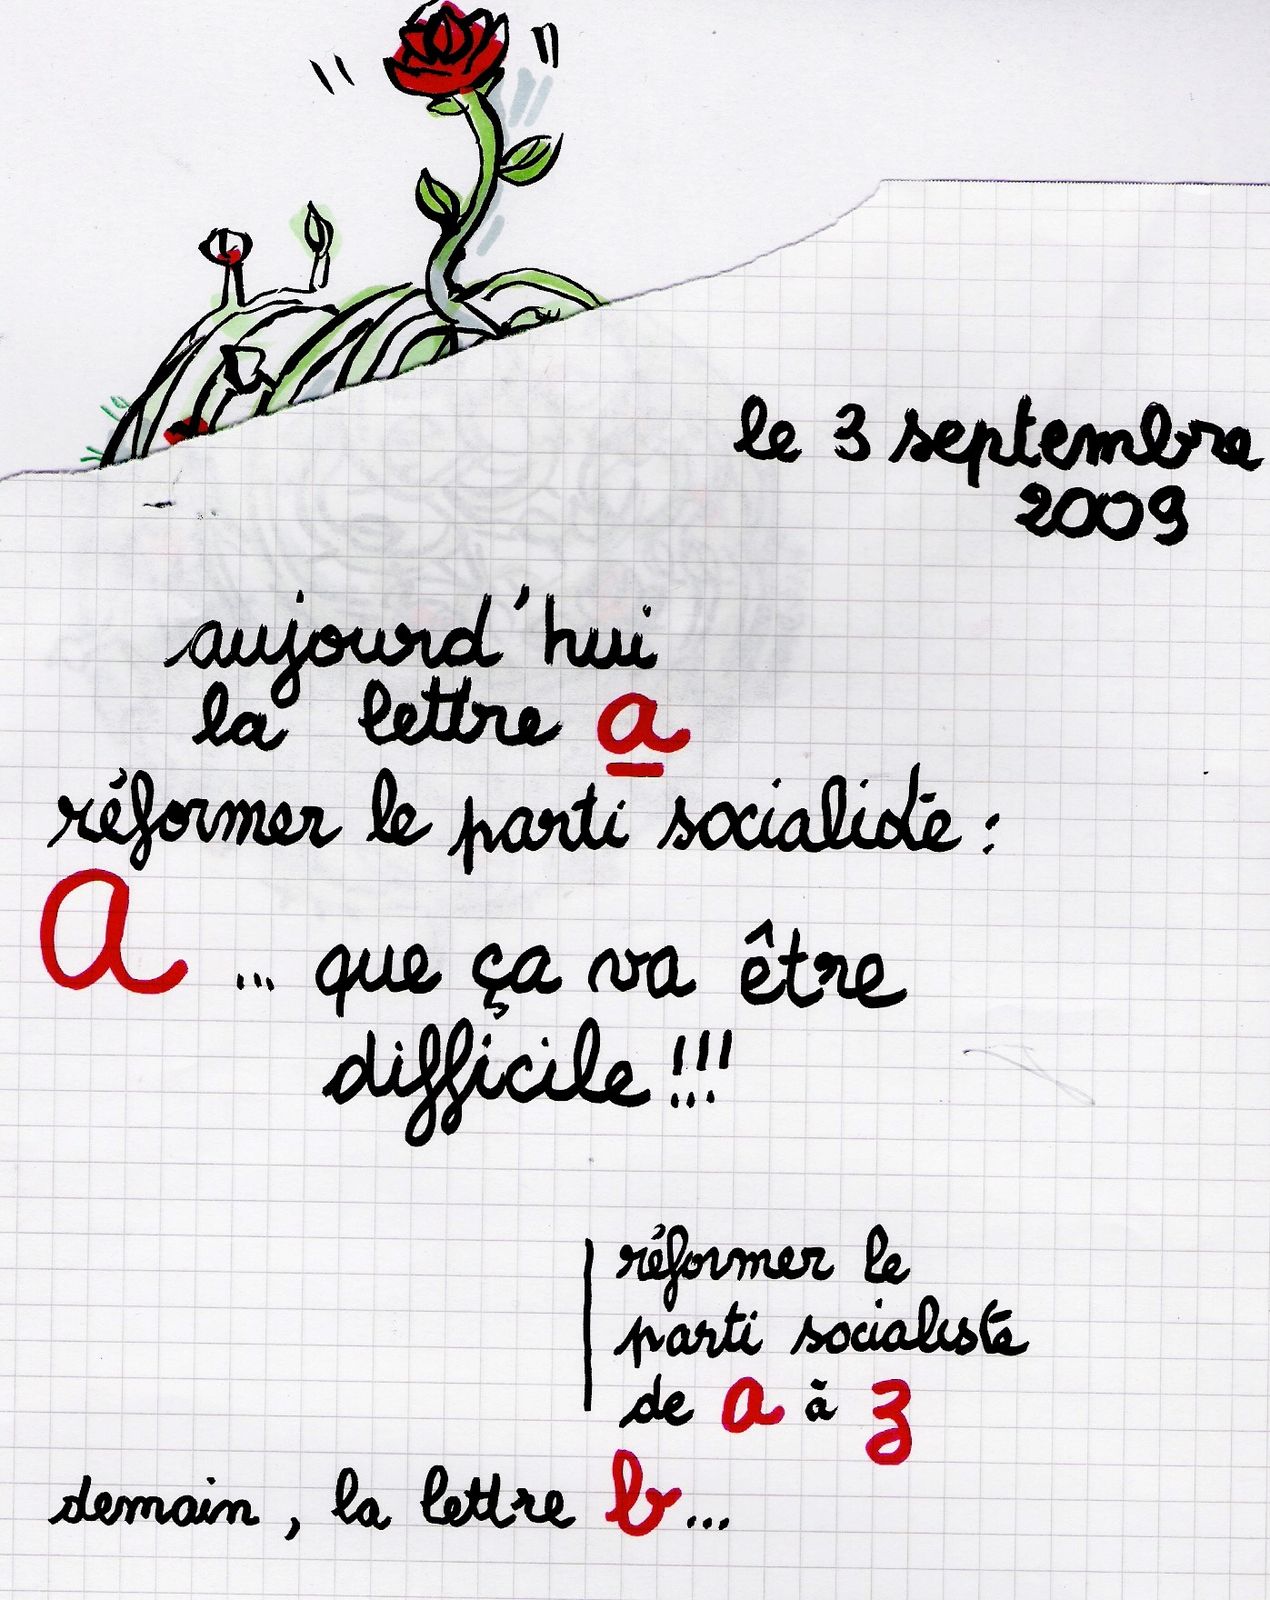 le 3 septembre
2009
aujourd'hui
la lettre a
réformer le parti socialiste :
A ... que ça va être
difficile !!!
réformer le
parti socialiste
de a à z
demain, la lettre b...